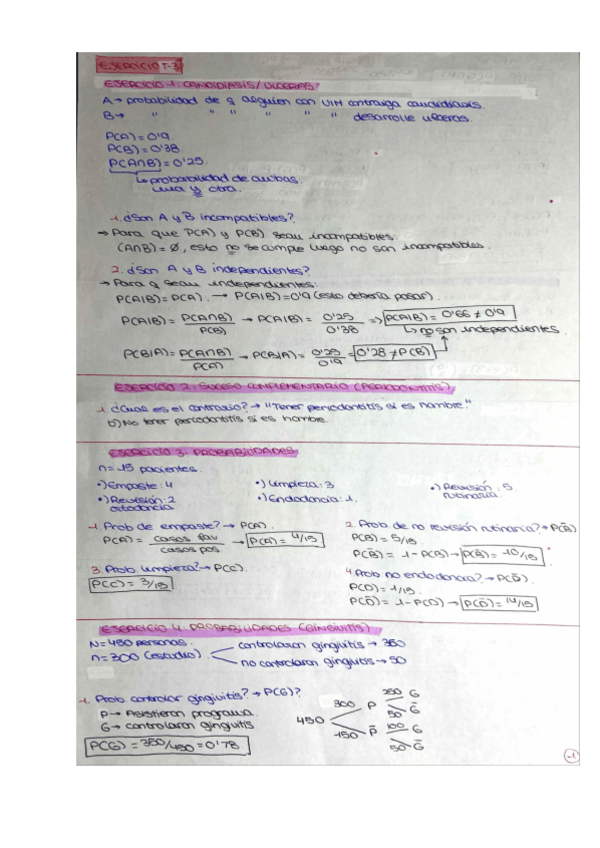 EJERCICIO T-3
EJERCICIO 1: CANDIDIASIS/ÚLCERAS
A → probabilidad de q alguien con VIH contraiga candidiasis.
B → " " " " " " desarrolle úlceras.
P(A) = 0'9.
P(B) = 0'38
P(A∩B) = 0'25.
↳ probabilidad de ambas.
una y otra.
1. ¿Son A y B incompatibles?
→ Para que P(A) y P(B) sean incompatibles:
(A∩B) = ∅, esto no se cumple luego no son incompatibles.
2. ¿Son A y B independientes?
→ Para q sean independientes:
P(A|B) = P(A). → P(A|B) = 0'9 (esto debería pasar).
P(A|B) = P(A∩B)/P(B) → P(A|B) = 0'25/0'38 => P(A|B) = 0'66 ≠ 0'9
↳ no son independientes
P(B|A) = P(A∩B)/P(A) → P(B|A) = 0'25/0'9 = 0'28 ≠ P(B)
EJERCICIO 2: SUCESO COMPLEMENTARIO (PERIODONTITIS)
1. ¿Cuál es el contrario? → "Tener periodontitis si es hombre."
b) No tener periodontitis si es hombre.
EJERCICIO 3: PROBABILIDADES
n = 15 pacientes.
•) Empaste: 4 •) Limpieza: 3 •) Revisión rutinaria: 5
•) Revisión ortodoncia: 2 •) Endodoncia: 1.
1. Prob de empaste? → P(A). 2. Prob. de no revisión rutinaria? → P(B̄)
P(A) = casos fav/casos pos. → P(A) = 4/15 P(B) = 5/15
P(B̄) = 1 - P(B) → P(B̄) = 10/15
3. Prob. limpieza? → P(C). 4. Prob no endodoncia? → P(D̄).
P(C) = 3/15 P(D) = 1/15.
P(D̄) = 1 - P(D) → P(D̄) = 14/15
EJERCICIO 4: PROBABILIDADES (GINGIVITIS)
N = 450 personas. controlaron gingivitis → 350
n = 300 (estudio) no controlaron gingivitis → 50
1. Prob. controlar gingivitis? → P(G)?
P → Asistieron programa.
G → controlaron gingivitis
P(G) = 350/450 = 0'78
450
300 P
250 G
50 Ḡ
150 P̄
100 G
50 Ḡ
-1